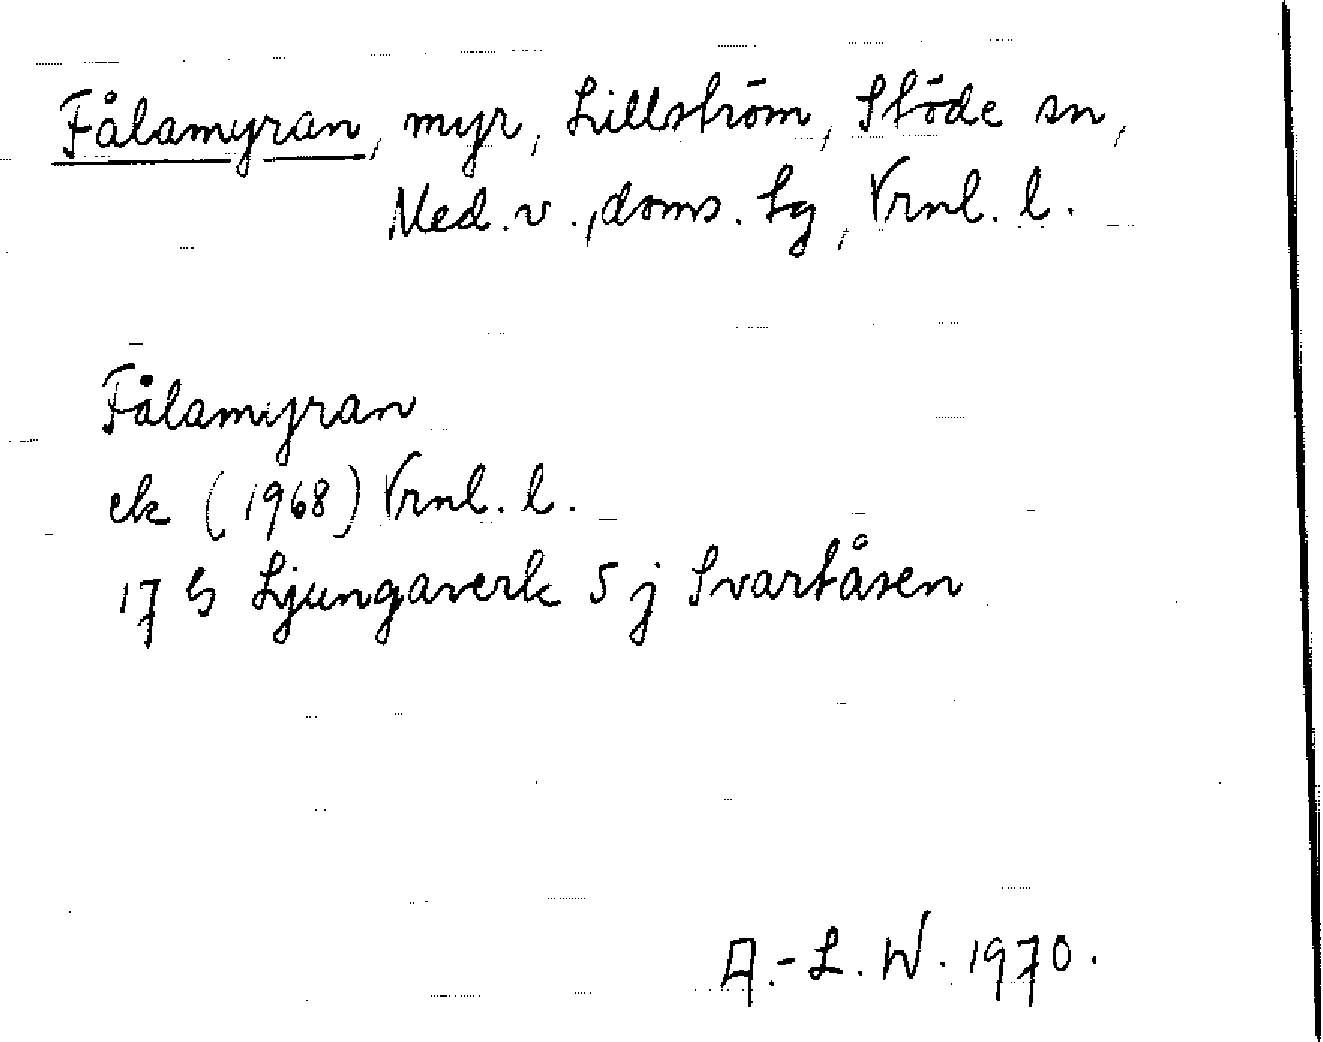 Fålamyran, myr, Lillström, Stöde sn,
Med. v., doms. Lg, Vrnl. l.
Fålamyran
ek (1968) Vrnl. l.
17 G Ljungaverk 5 j Svartåsen
A.-L. W. 1970.